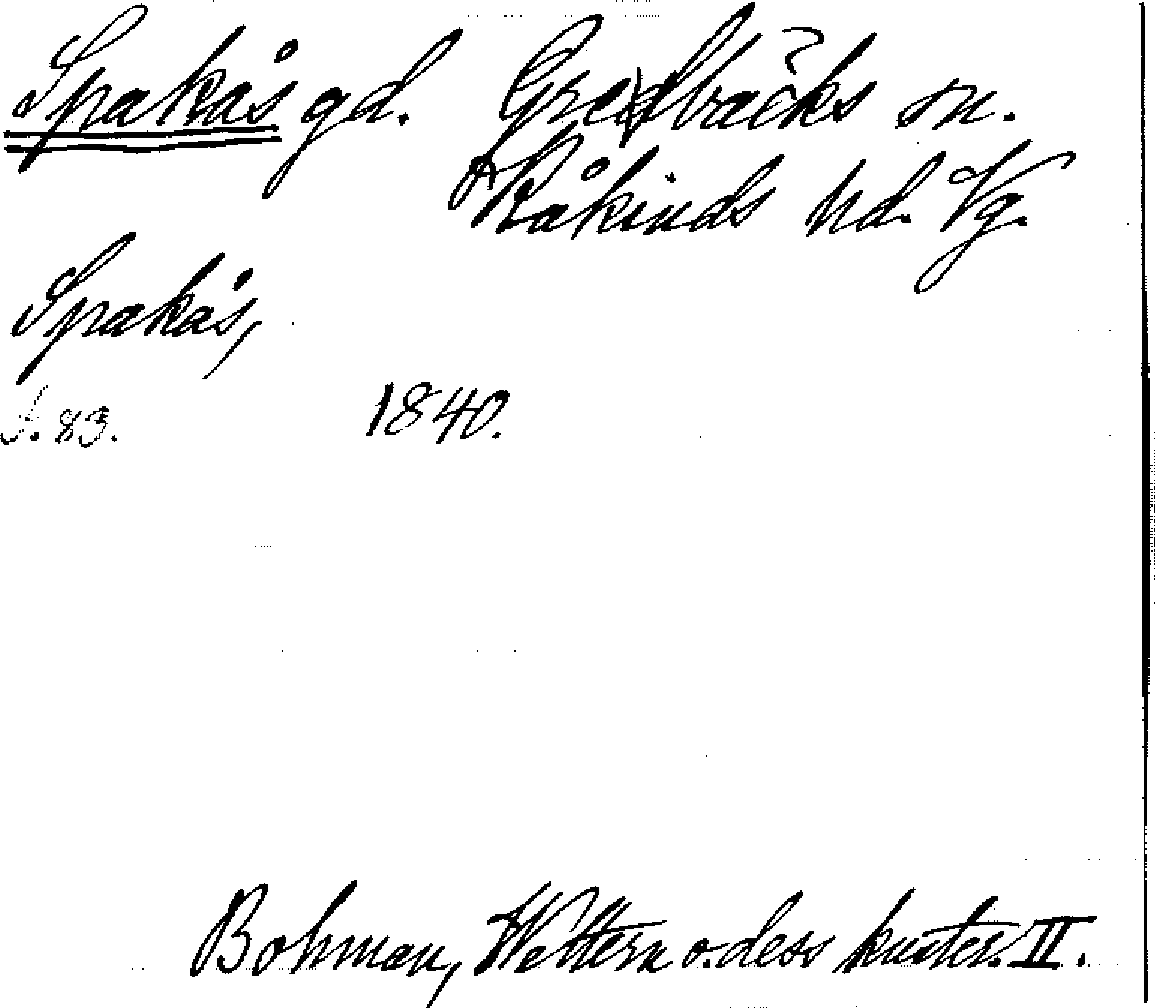 Spakås gd. Gredbäcks sn.
Kåkinds hd. Vg.
Spakås,
s. 83. 1840.
Bohman, Wettern o. dess kuster. II.